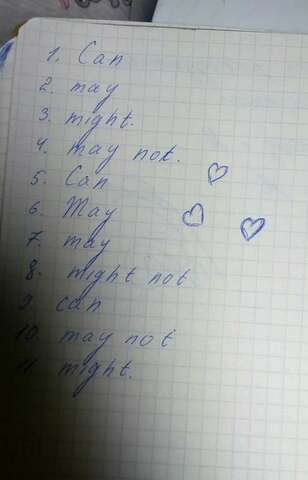 1. Can
2. may
3. might.
4. may not.
5. Can
6. May
7. may
8. might not
9. can
10. may not
11. might.